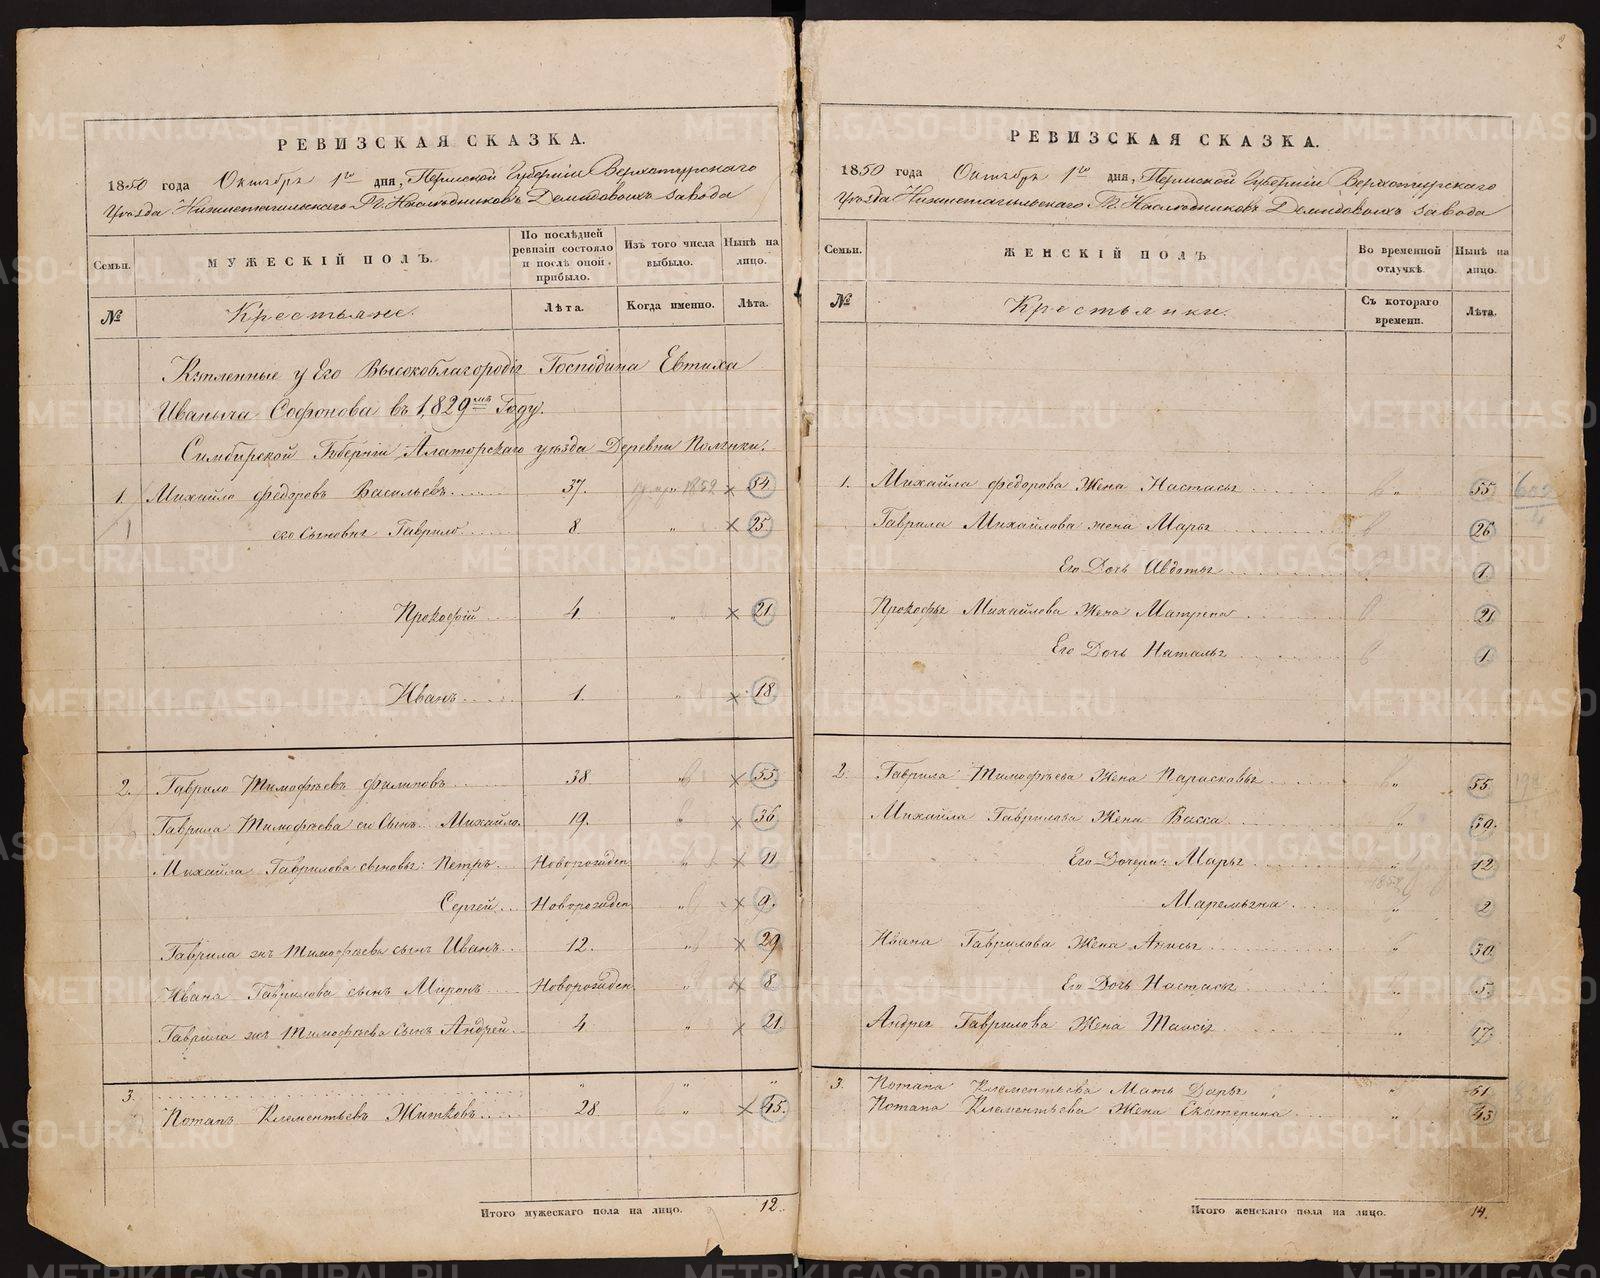 РЕВИЗСКАЯ СКАЗКА.
1850 года Октября 1го дня, Пермской Губерніи Верхотурскаго
Уѣзда Нижнетагильскаго Г. Г. Наслѣдниковъ Демидовыхъ завода
Семьи. МУЖЕСКІЙ ПОЛЪ. По послѣдней ревизіи состояло и послѣ оной прибыло. Изъ того числа выбыло. Нынѣ на лицо.
№ Крестьяне. Лѣта. Когда именно. Лѣта.
Купленные у Его Высокоблагородія Господина Евтиха
Иваныча Софонова въ 1,829мъ Году.
Симбирской Губерніи Алаторскаго уѣзда Деревни
1. Михайло Федоровъ Васильевъ 37. 1852 54
его сыновья Гаврило 8. " 25
Прокофій 4. " 21
Иванъ 1. " 18
2. Гаврило Тимофѣевъ Филиповъ 38 " 55.
Гаврила Тимофѣева сынъ Михайло. 19. " 36
Михайла Гаврилова сыновья: Петръ Новорожден " 11
Сергей Новорожден " 9.
Гаврила Тимофѣева сынъ Иванъ 12. " 29
Ивана Гаврилова сынъ Миронъ Новорожден " 8
Гаврила Тимофѣева сынъ Андрей 4 " 21
3. " " "
Потапъ Клементьевъ Житковъ 28. " 45.
Итого мужескаго пола на лицо. 12.
2
РЕВИЗСКАЯ СКАЗКА.
1850 года Октября 1го дня, Пермской Губерніи Верхотурскаго
Уѣзда Нижнетагильскаго Г. Г. Наслѣдниковъ Демидовыхъ завода
Семьи. ЖЕНСКІЙ ПОЛЪ Во временной отлучкѣ Нынѣ на лицо.
№ Крестьянки. Съ котораго времени. Лѣта.
1. Михайла Федорова Жена Настасья " 55
Гаврила Михайлова жена Марья 26
Его Дочь Авдотья 1.
Прокофья Михайлова Жена Матрена 21
Его Дочь Наталья 1.
2. Гаврила Тимофѣева Жена Парасковья " 55.
Михайла Гаврилова Жена Васса " 39.
Его Дочери: Марья " 12
1852 " 2
Ивана Гаврилова Жена Анисья " 30
Его Дочь Настасья " 5.
Андрея Гаврилова Жена Таисія " 17.
3. Потапа Клементьева Мать Дарья " 61
Потапа Клементьева Жена Екатерина " 43
Итого женскаго пола на лицо. 14.
METRIKI.GASO-URAL.RU